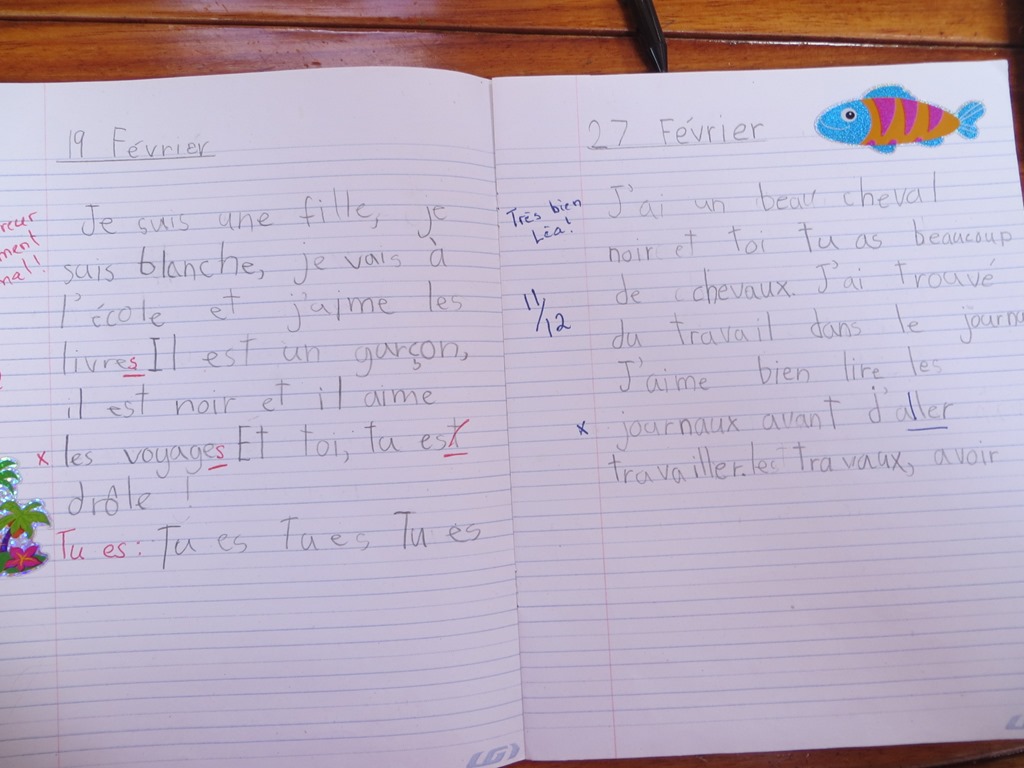 19 Février
Je suis une fille, je
suis blanche, je vais à
l'école et j'aime les
livres Il est un garçon,
il est noir et il aime
x les voyages Et toi, tu est
drôle !
Tu es: Tu es Tu es Tu es
27 Février
Très bien
Léa!
11/12
J'ai un beau cheval
noir et toi tu as beaucoup
de chevaux. J'ai trouvé
du travail dans le
J'aime bien lire les
x journaux avant d'aller
travailler. les travaux, avoir